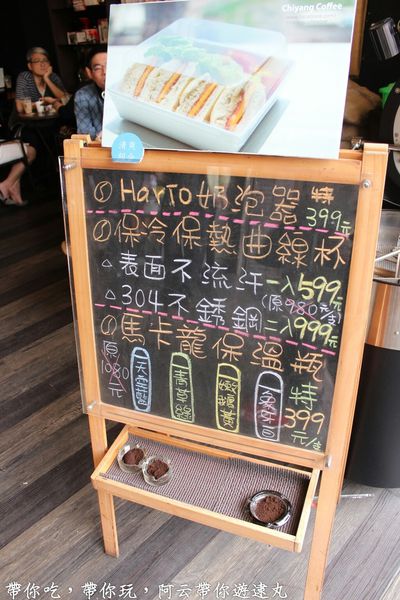 Chiyang Coffee
清爽
組合
① HarTo奶泡器 特399元
①保冷保熱曲線杯
△表面不流汗 一入599元
(原980元/支)
△304不銹鋼 二入999元
①馬卡龍保溫瓶
原1080元
天空藍
特399元/支
帶你吃，帶你玩，阿云帶你遊逮丸